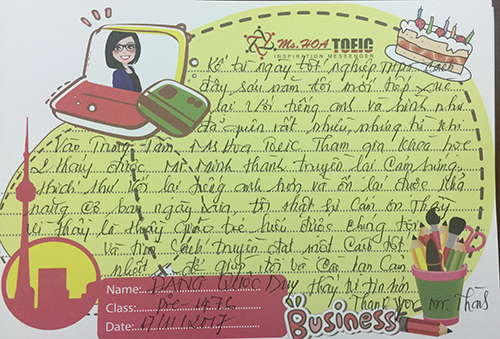 Ms. HOA TOEIC
INSPIRATION MESSENGER
Kể từ ngày tốt nghiệp THPT cách
đây sáu năm tôi mới tiếp xúc
lại với tiếng anh và hình như
đã quên rất nhiều, nhưng từ khi
vào Trung tâm Ms Hoa Toeic Tham gia khóa học
thầy được Mr Minh thành truyền lại cảm hứng
thích thú với lại tiếng anh hơn và ôn lại được khả
năng cơ bản ngày xưa, tôi thật sự cảm ơn Thầy
vì thầy là thầy giáo trẻ hiểu được chúng tôi
Và tìm cách truyền đạt một cách tốt
nhất để giúp tôi và các bạn cảm
thấy tự tin hơn
Thank you Mr. Thành
Name: ĐẶNG QUỐC DUY
Class: Pre - 1476
Date: 17/11/2017
Business